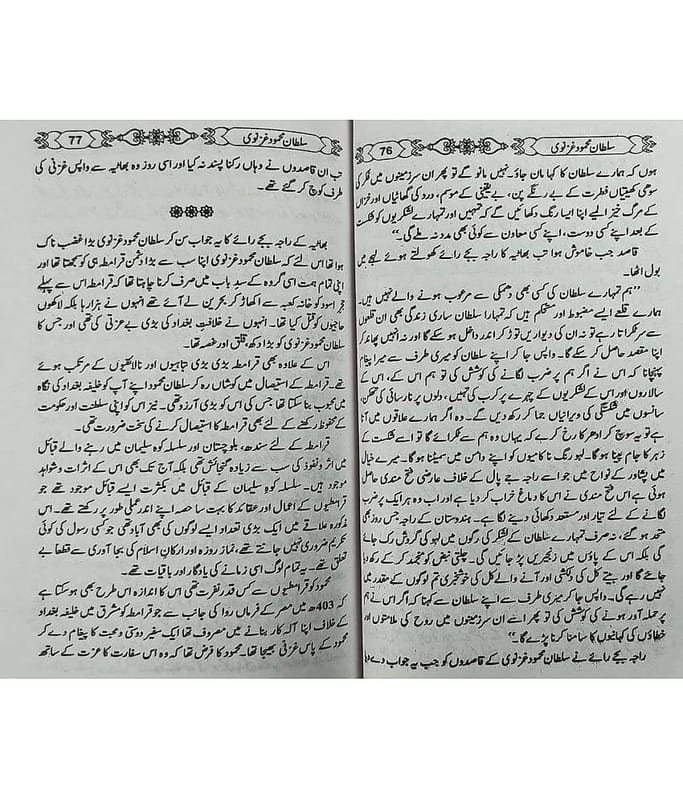 سلطان محمود غزنوی
76
ہوں کہ ہمارے سلطان کا کہا مان جاؤ۔ نہیں مانو گے تو پھر ان سرزمینوں میں فکر کی
سوکھی کھیتیاں فطرت کے بے رنگے پن، بے یقینی کے موسم، درد کی گھاٹیاں اور خزاں
کے مرگ خیز المیے اپنا ایسا رنگ دکھائیں گے کہ تمہیں اور تمہارے لشکریوں کو شکست
کے بعد اپنے کسی دوست، اپنے کسی معاون سے کوئی بھی مدد نہ ملے گی۔“
قاصد جب خاموش ہوا تب بھاٹیہ کا راجہ بجے رائے کھولتے ہوئے لہجے میں
بول اٹھا۔
”ہم تمہارے سلطان کی کسی بھی دھمکی سے مرعوب ہونے والے نہیں ہیں۔
ہمارے قلعے ایسے مضبوط اور مستحکم ہیں کہ تمہارا سلطان ساری زندگی بھی ان قلعوں
سے سر ٹکراتا رہے تو نہ ان کی دیواریں توڑ کر اندر داخل ہو سکے گا اور نہ انہیں پھاند کر
اپنا مقصد حاصل کر سکے گا۔ واپس جا کر اپنے سلطان کو میری طرف سے میرا پیغام
پہنچانا کہ اس نے اگر ہم پر ضرب لگانے کی کوشش کی تو ہم اس کے، اس کے
سالاروں اور اس کے لشکریوں کے چہرے پر کرب کی نہیں، دلوں پر نارسائی کی تھکن،
سانسوں میں شکستگی کی ویرانیاں جما کر رکھ دیں گے۔ وہ اگر ہمارے علاقوں میں آنا
ہے تو یہ سوچ کر ادھر کا رخ کرے کہ یہاں وہ ہم سے ٹکرائے گا تو اسے شکست کے
زہر کا جام پینا ہو گا۔ لہو رنگ ناکامیوں کو اپنے دامن میں سمیٹنا ہو گا۔ میرے خیال
میں پشاور کے نواح میں جو اسے راجہ جے پال کے خلاف عارضی فتح مندی حاصل
ہوئی ہے اس فتح مندی نے اس کا دماغ خراب کر دیا ہے اور اب وہ ہر ایک پر ضرب
لگانے کے لئے تیار اور مستعد دکھائی دینے لگا ہے۔ ہندوستان کے راجہ جس روز بھی
متحد ہو گئے، نہ صرف تمہارے سلطان کے لشکر کی رگوں میں لہو کی گردش رک جائے
گی بلکہ اس کے پاؤں میں زنجیریں پڑ جائیں گی۔ چلتی نبض کو منجمد کر کے رکھ دیا
جائے گا اور بیتے کل کی دلکشی اور آنے والے کل کی خوشخبری تم لوگوں کے مقدر میں
نہیں رہے گی۔ واپس جا کر میری طرف سے اپنے سلطان سے کہنا کہ اگر اس نے ہم
پر حملہ آور ہونے کی کوشش کی تو پھر اسے ان سرزمینوں میں روح کی ملامتوں اور
خطاؤں کی کہانیوں کا سامنا کرنا پڑے گا۔“
راجہ بجے رائے نے سلطان محمود غزنوی کے قاصدوں کو جب یہ جواب دے دیا
سلطان محمود غزنوی
77
تب ان قاصدوں نے وہاں رکنا پسند نہ کیا اور اسی روز وہ بھاٹیہ سے واپس غزنی کی
طرف کوچ کر گئے تھے۔
بھاٹیہ کے راجہ بجے رائے کا یہ جواب سن کر سلطان محمود غزنوی بڑا غضب ناک
ہوا تھا اس لئے کہ سلطان محمود غزنوی اپنا سب سے بڑا دشمن قرامطہ ہی کو سمجھتا تھا اور
اپنی تمام ہمت اسی گروہ کے سدِ باب میں صرف کرنا چاہتا تھا کہ قرامطہ اس سے پہلے
حجرِ اسود کو خانہ کعبہ سے اکھاڑ کر بحرین لے آئے تھے انہوں نے ہزارہا بلکہ لاکھوں
حاجیوں کو قتل کیا تھا۔ انہوں نے خلافتِ بغداد کی بڑی بے عزتی کی تھی اور جس کا
سلطان محمود غزنوی کو بڑا دکھ، قلق اور غصہ تھا۔
اس کے علاوہ بھی قرامطہ بڑی بڑی تباہیوں اور نالائقیوں کے مرتکب ہوئے
تھے۔ قرامطہ کے استیصال میں کوشاں رہ کر سلطان محمود اپنے آپ کو خلیفہ بغداد کی نگاہ
میں محبوب بنا سکتا تھا جس کی اس کو بڑی آرزو تھی۔ نیز اس کو اپنی سلطنت اور حکومت
کے محفوظ رکھنے کے لئے بھی قرامطہ کا استیصال کرنے کی سخت ضرورت تھی۔
قرامطہ کے لئے سندھ، بلوچستان اور سلسلہ کوہِ سلیمان میں رہنے والے قبائل
میں اثر و نفوذ کی سب سے زیادہ گنجائش تھی بلکہ آج تک بھی اس کے اثرات و شواہد
موجود ہیں۔ سلسلہ کوہِ سلیمان کے قبائل میں بکثرت ایسے قبائل موجود تھے جو
قرامطیوں کے اعمال اور عقائد کا بہت سا حصہ اپنے اندر عملی طور پر رکھتے تھے۔ اس
مذکورہ علاقے میں ایک بڑی تعداد ایسے لوگوں کی بھی آباد تھی جو کسی رسول کی کوئی
تکریم ضروری نہیں جانتے تھے، نماز روزہ اور ارکانِ اسلام کی بجا آوری سے قطعاً بے
تعلق تھے۔ یہ تمام لوگ اسی زمانے کی یادگار اور باقیات تھے۔
محمود کو قرامطیوں سے کس قدر نفرت تھی اس کا اندازہ اس طرح بھی ہو سکتا ہے
کہ 403ھ میں مصر کے فرماں روا کی جانب سے جو قرامطہ کو مشرق میں خلیفہ بغداد
کے خلاف اپنا آلہ کار بنانے میں مصروف تھا ایک سفیر دوستی و محبت کا پیغام دے کر
محمود کے پاس غزنی بھیجا تھا۔ محمود کا فرض تھا کہ وہ اس سفارت کا عزت کے ساتھ